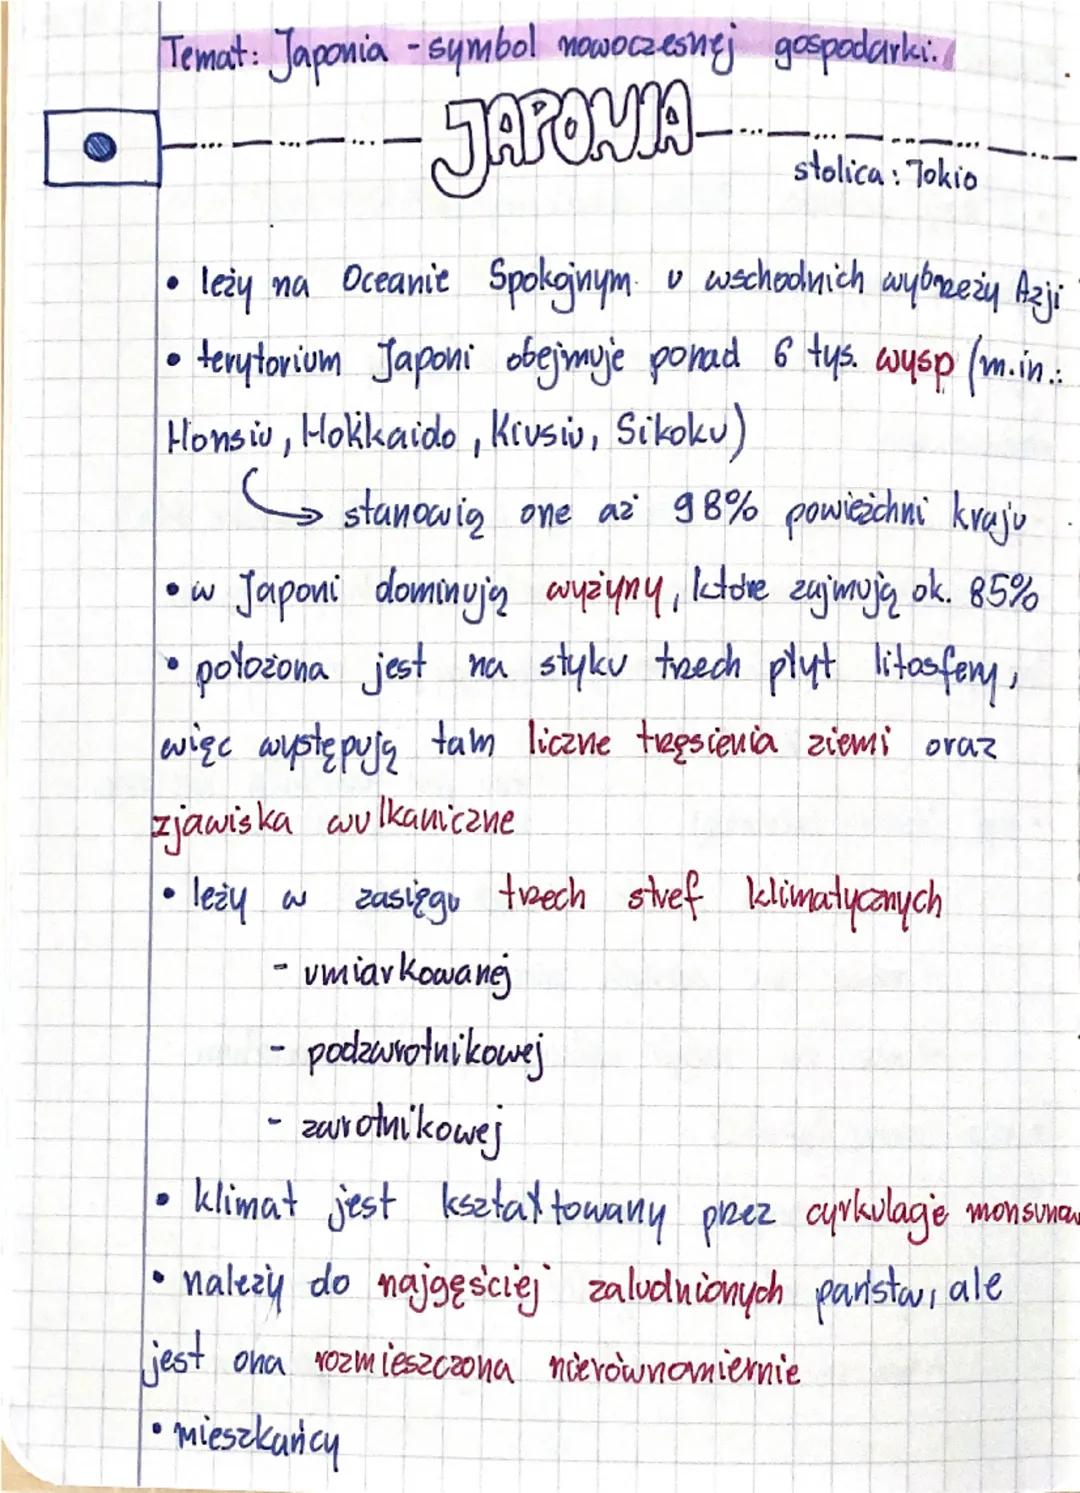 Temat: Japonia - symbol nowoczesnej gospodarki.
JAPONIA
stolica: Tokio
• leży na Oceanie Spokojnym u wschodnich wybrzeży Azji
• terytorium Japoni obejmuje ponad 6 tys. wysp (m.in.:
Honsiu, Hokkaido, Kiusiu, Sikoku)
→ stanowią one aż 98% powieżchni kraju
• w Japoni dominują wyżyny, które zajmują ok. 85%
• położona jest na styku trzech płyt litosfery,
więc występują tam liczne trzęsienia ziemi oraz
zjawiska wulkaniczne
• leży w zasięgu trzech stref klimatycznych
- umiarkowanej
- podzwrotnikowej
- zwrotnikowej
• klimat jest kształtowany przez cyrkulację monsunow
• należy do najgęściej zaludnionych państw, ale
jest ona rozmieszczona nierównomiernie
• mieszkańcy